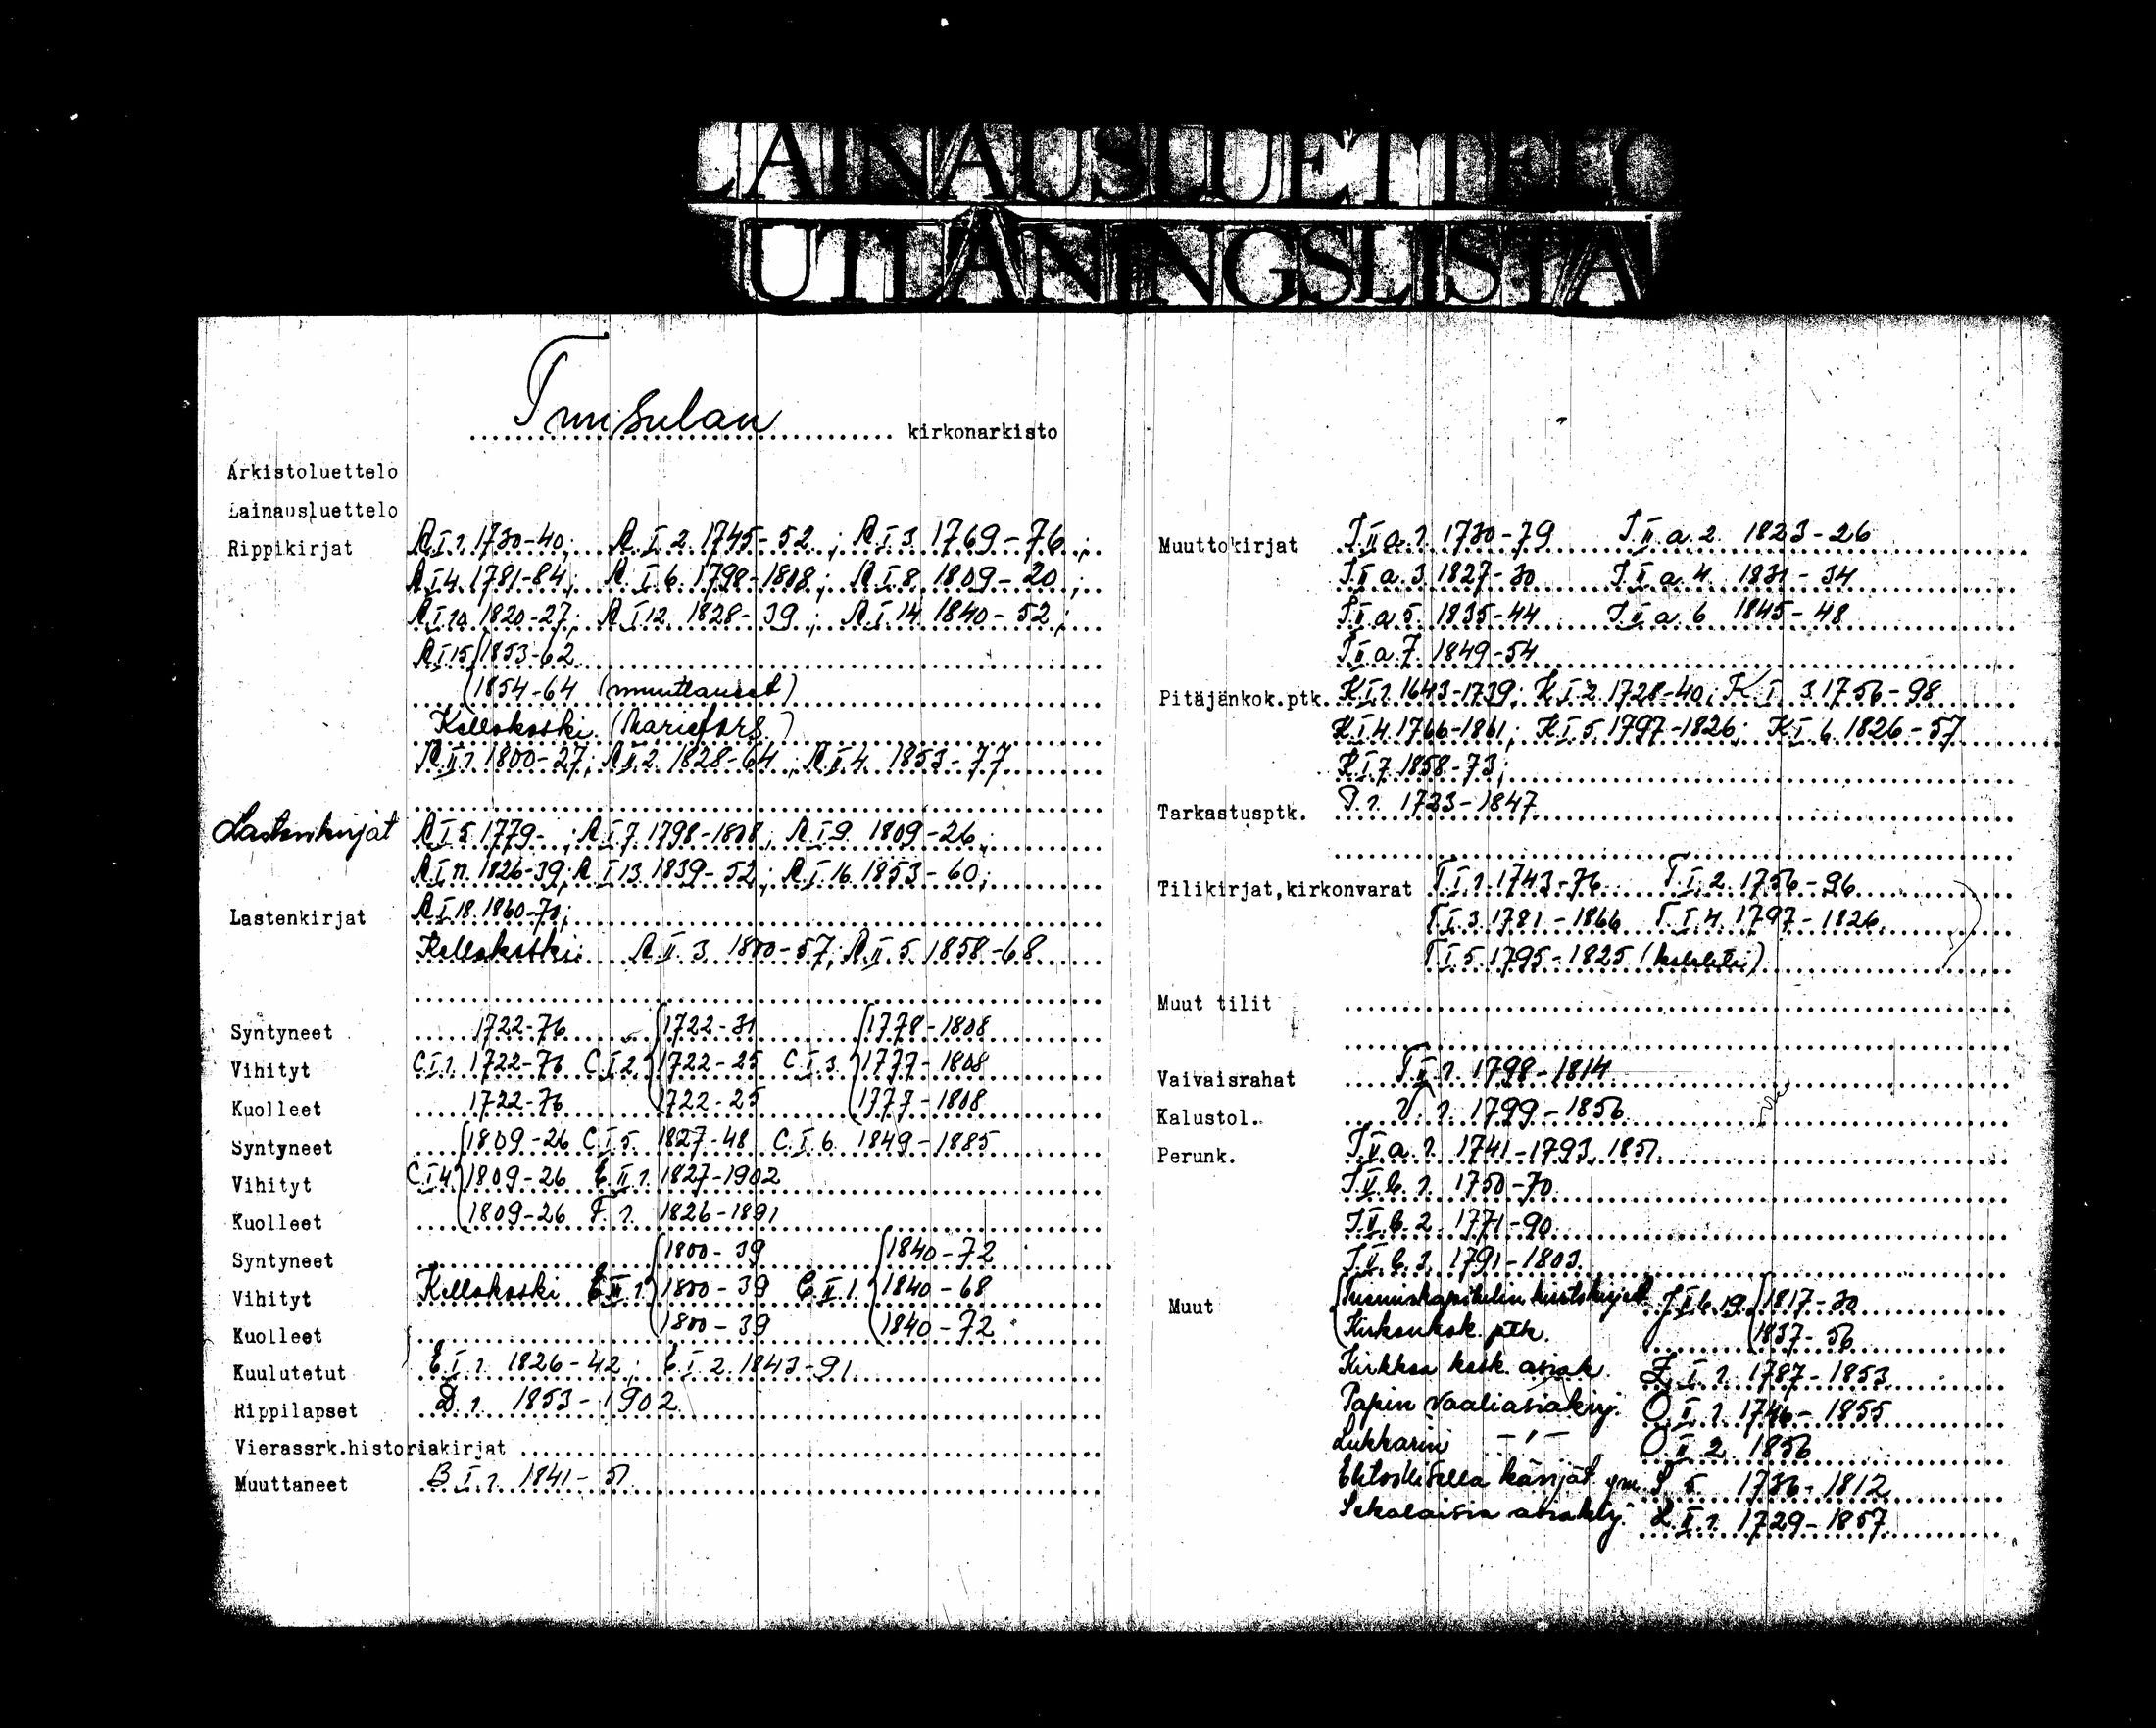 LAINAUSLUETTELO
UTLÅNINGSLISTA
Tuusulan kirkonarkisto
Arkistoluettelo
Lainausluettelo
Rippikirjat A.I.1. 1730-40; A.I.2. 1745-52; A.I.3. 1769-76;
A.I.4. 1781-84; A.I.6. 1798-1808; A.I.8. 1809-20;
A.I.10. 1820-27; A.I.12. 1828-39; A.I.14. 1840-52;
A.I.15. 1853-62
1854-64 (muuttaneet)
Kellokoski (Mariefors)
A.II.1. 1800-27; A.II.2. 1828-64; A.II.4. 1853-77
Lastenkirjat A.I.5. 1779- ; A.I.7. 1798-1808; A.I.9. 1809-26;
A.I.11. 1826-39; A.I.13. 1839-52; A.I.16. 1853-60;
Lastenkirjat A.I.18. 1860-70;
Kellokoski: A.II.3. 1800-57; A.II.5. 1858-68
Syntyneet 1722-76 1722-31 1778-1808
Vihityt C.I.1. 1722-76 C.I.2. 1722-25 C.I.3. 1777-1808
Kuolleet 1722-76 1722-25 1777-1808
Syntyneet 1809-26 C.I.5. 1827-48 C.I.6. 1849-1885
Vihityt C.I.4. 1809-26 E.II.1. 1827-1902
Kuolleet 1809-26 F.1. 1826-1891
Syntyneet 1800-39 1840-72
Vihityt Kellokoski 1800-39 C.II.1. 1840-68
Kuolleet 1800-39 1840-72
Kuulutetut E.I.1. 1826-42; E.I.2. 1843-91
Rippilapset D.1. 1853-1902
Vierassrk.historiakirjat
Muuttaneet B.I.1. 1841-51
Muuttokirjat J.II.a.1. 1730-79 J.II.a.2. 1823-26
J.II.a.3. 1827-30 J.II.a.4. 1831-34
J.II.a.5. 1835-44 J.II.a.6 1845-48
J.II.a.7. 1849-54
Pitäjänkok.ptk. K.I.1. 1643-1739; K.I.2. 1728-40; K.I.3. 1756-98
K.I.4. 1766-1861; K.I.5. 1797-1826; K.I.6. 1826-57
K.I.7. 1858-73;
Tarkastusptk. P.1. 1723-1847
Tilikirjat,kirkonvarat T.I.1. 1743-76 T.I.2. 1756-96
T.I.3. 1781-1866 T.I.4. 1797-1826
T.I.5. 1795-1825
Muut tilit
Vaivaisrahat T.II.1. 1798-1814
Kalustol. V.1. 1799-1856
Perunk. J.V.a.1. 1741-1793, 1851
J.V.b.1. 1750-70
J.V.b.2. 1771-90
J.V.b.3. 1791-1803
Muut Tuomiokapitulin 1817-30
Kirkonkok. ptk. 1837-56
Kirkkoa kosk. asiak. Z.I.1. 1787-1853
Papin vaaliasiakirj. O.II.1. 1746-1855
Lukkarin -,- O.II.2. 1856
1736-1812
Sekalaisia asiakirj. 1729-1857